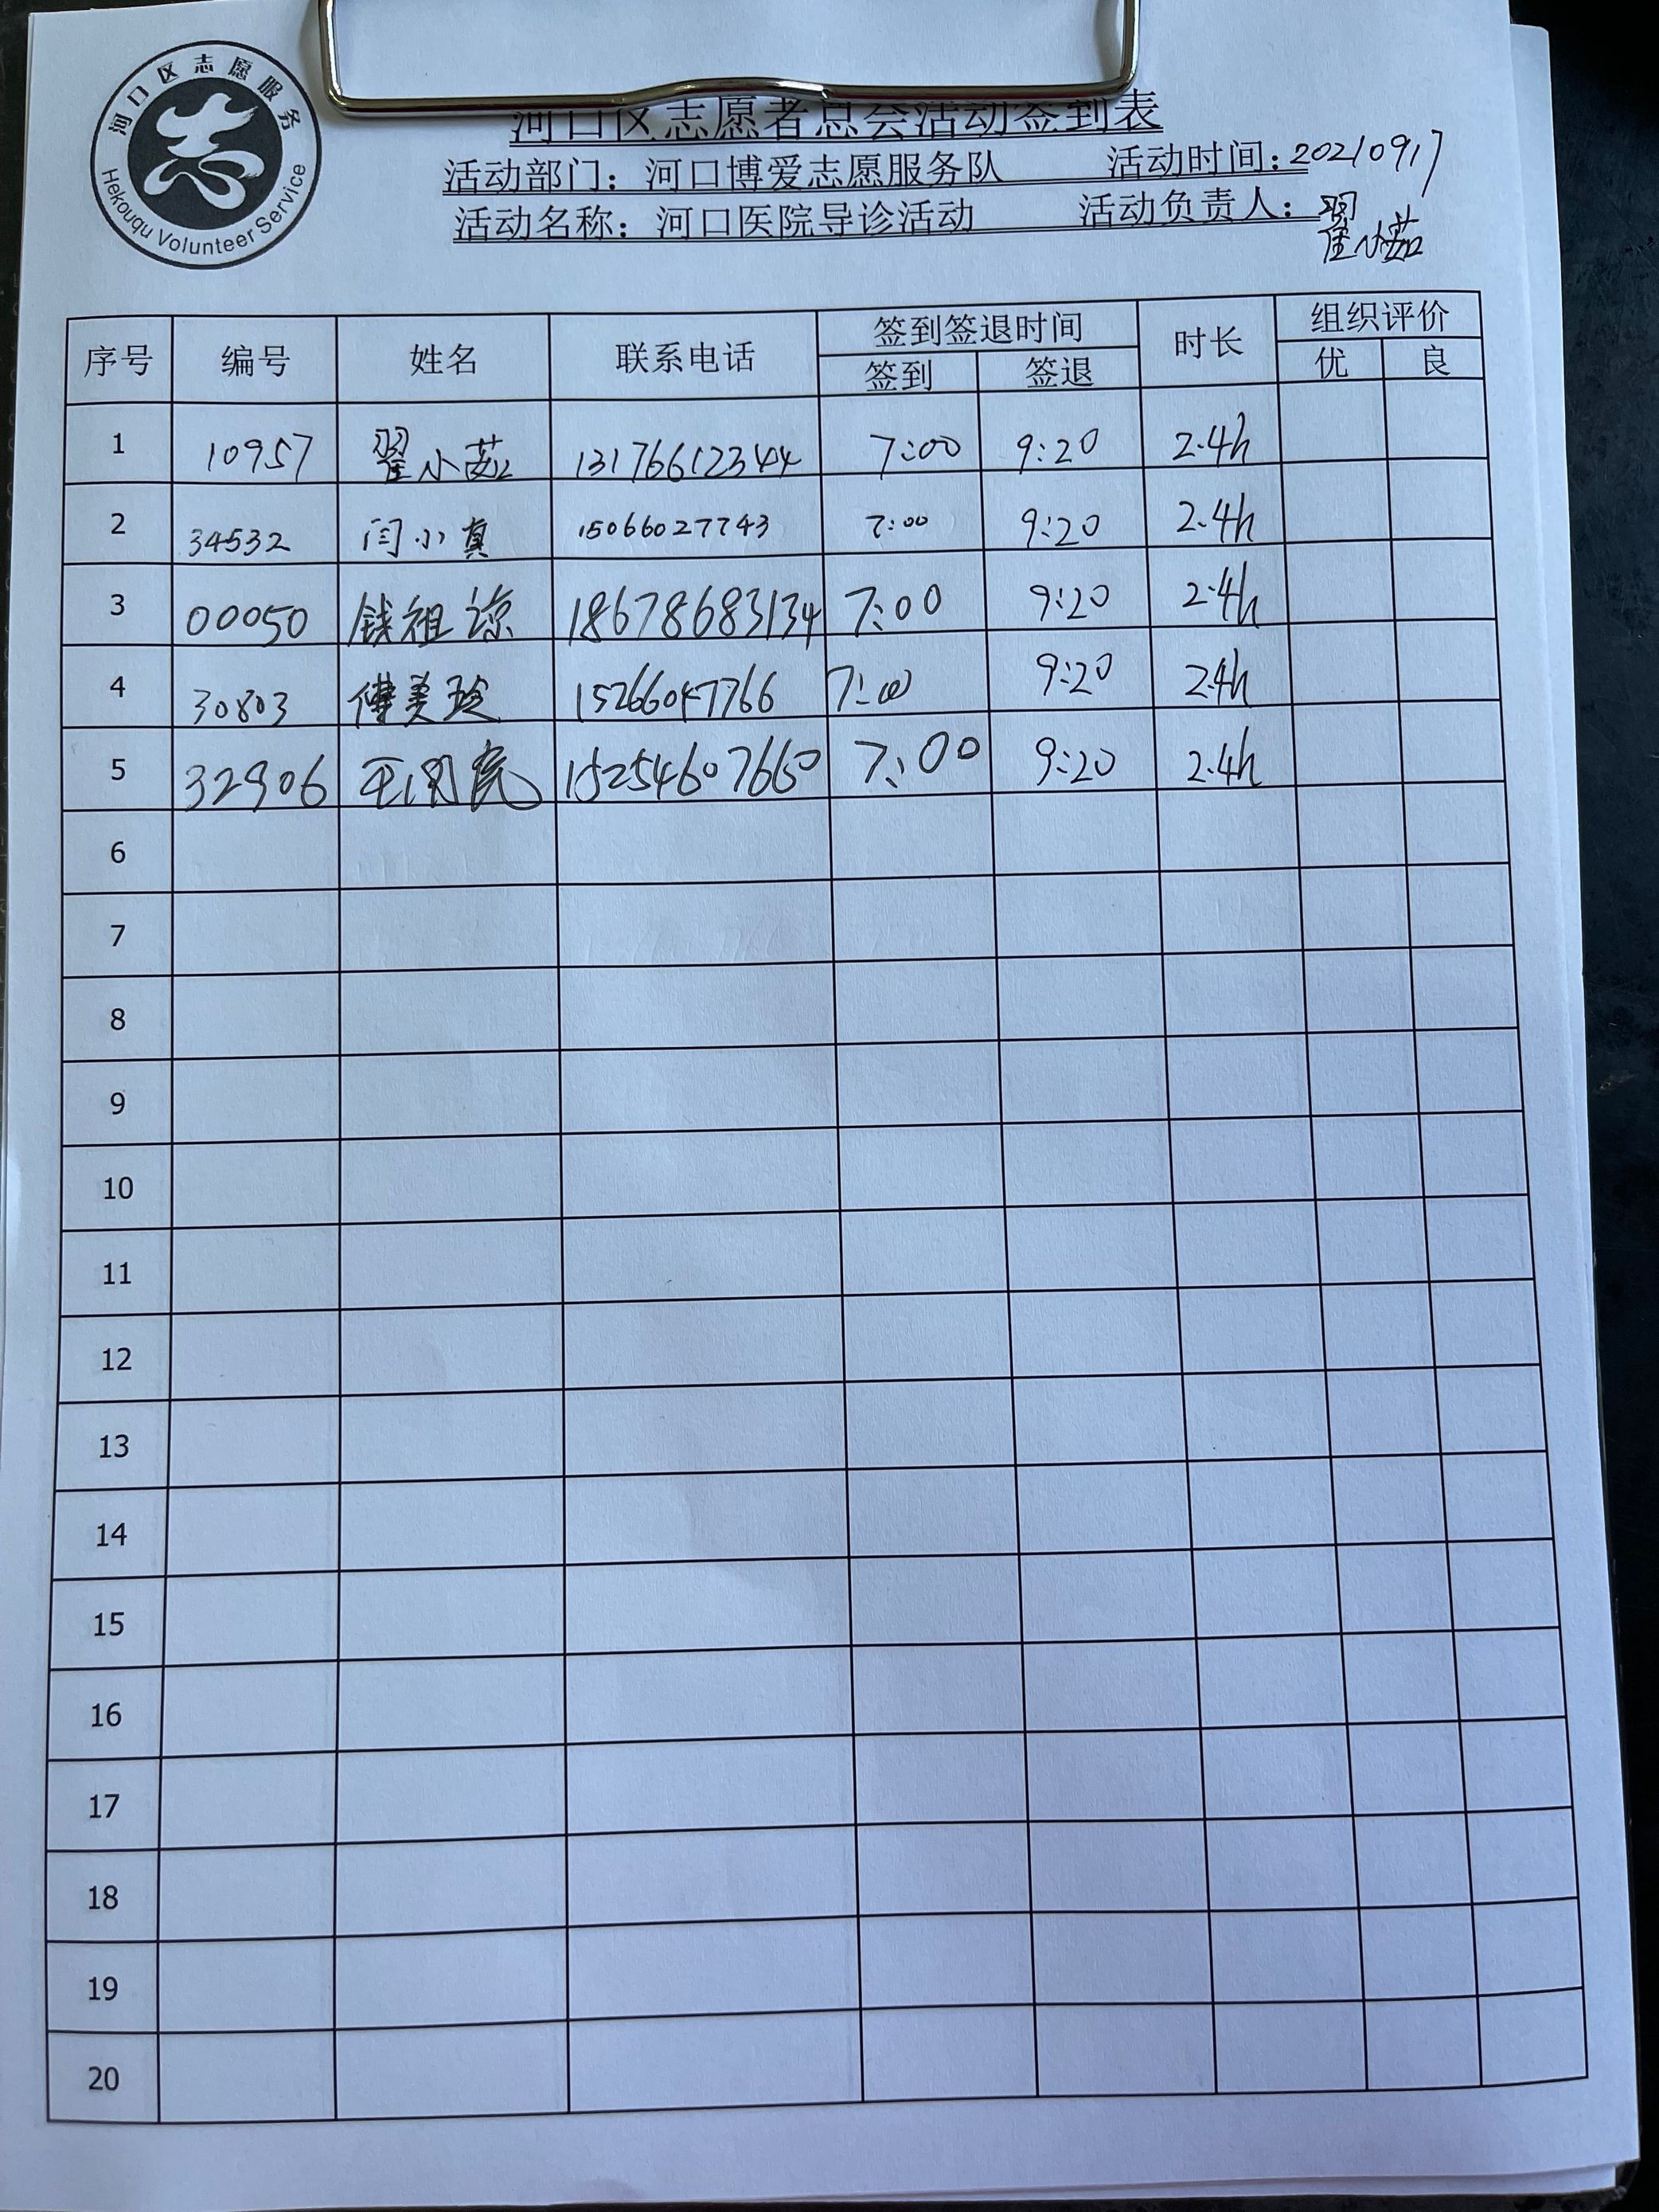 河口区志愿服务
Hekouqu Volunteer Service
河口区志愿者总会活动签到表
活动部门：河口博爱志愿服务队 活动时间：20210917
活动名称：河口医院导诊活动 活动负责人：翟小茹
序号 编号 姓名 联系电话 签到签退时间 时长 组织评价
签到 签退 优 良
1 10957 翟小茹 13176612344 7:00 9:20 2.4h
2 34532 闫小真 15066027743 7:00 9:20 2.4h
3 00050 钱祖凉 18678683134 7:00 9:20 2.4h
4 30803 傅美玲 15266047766 7:00 9:20 2.4h
5 32906 15254607660 7:00 9:20 2.4h
6
7
8
9
10
11
12
13
14
15
16
17
18
19
20